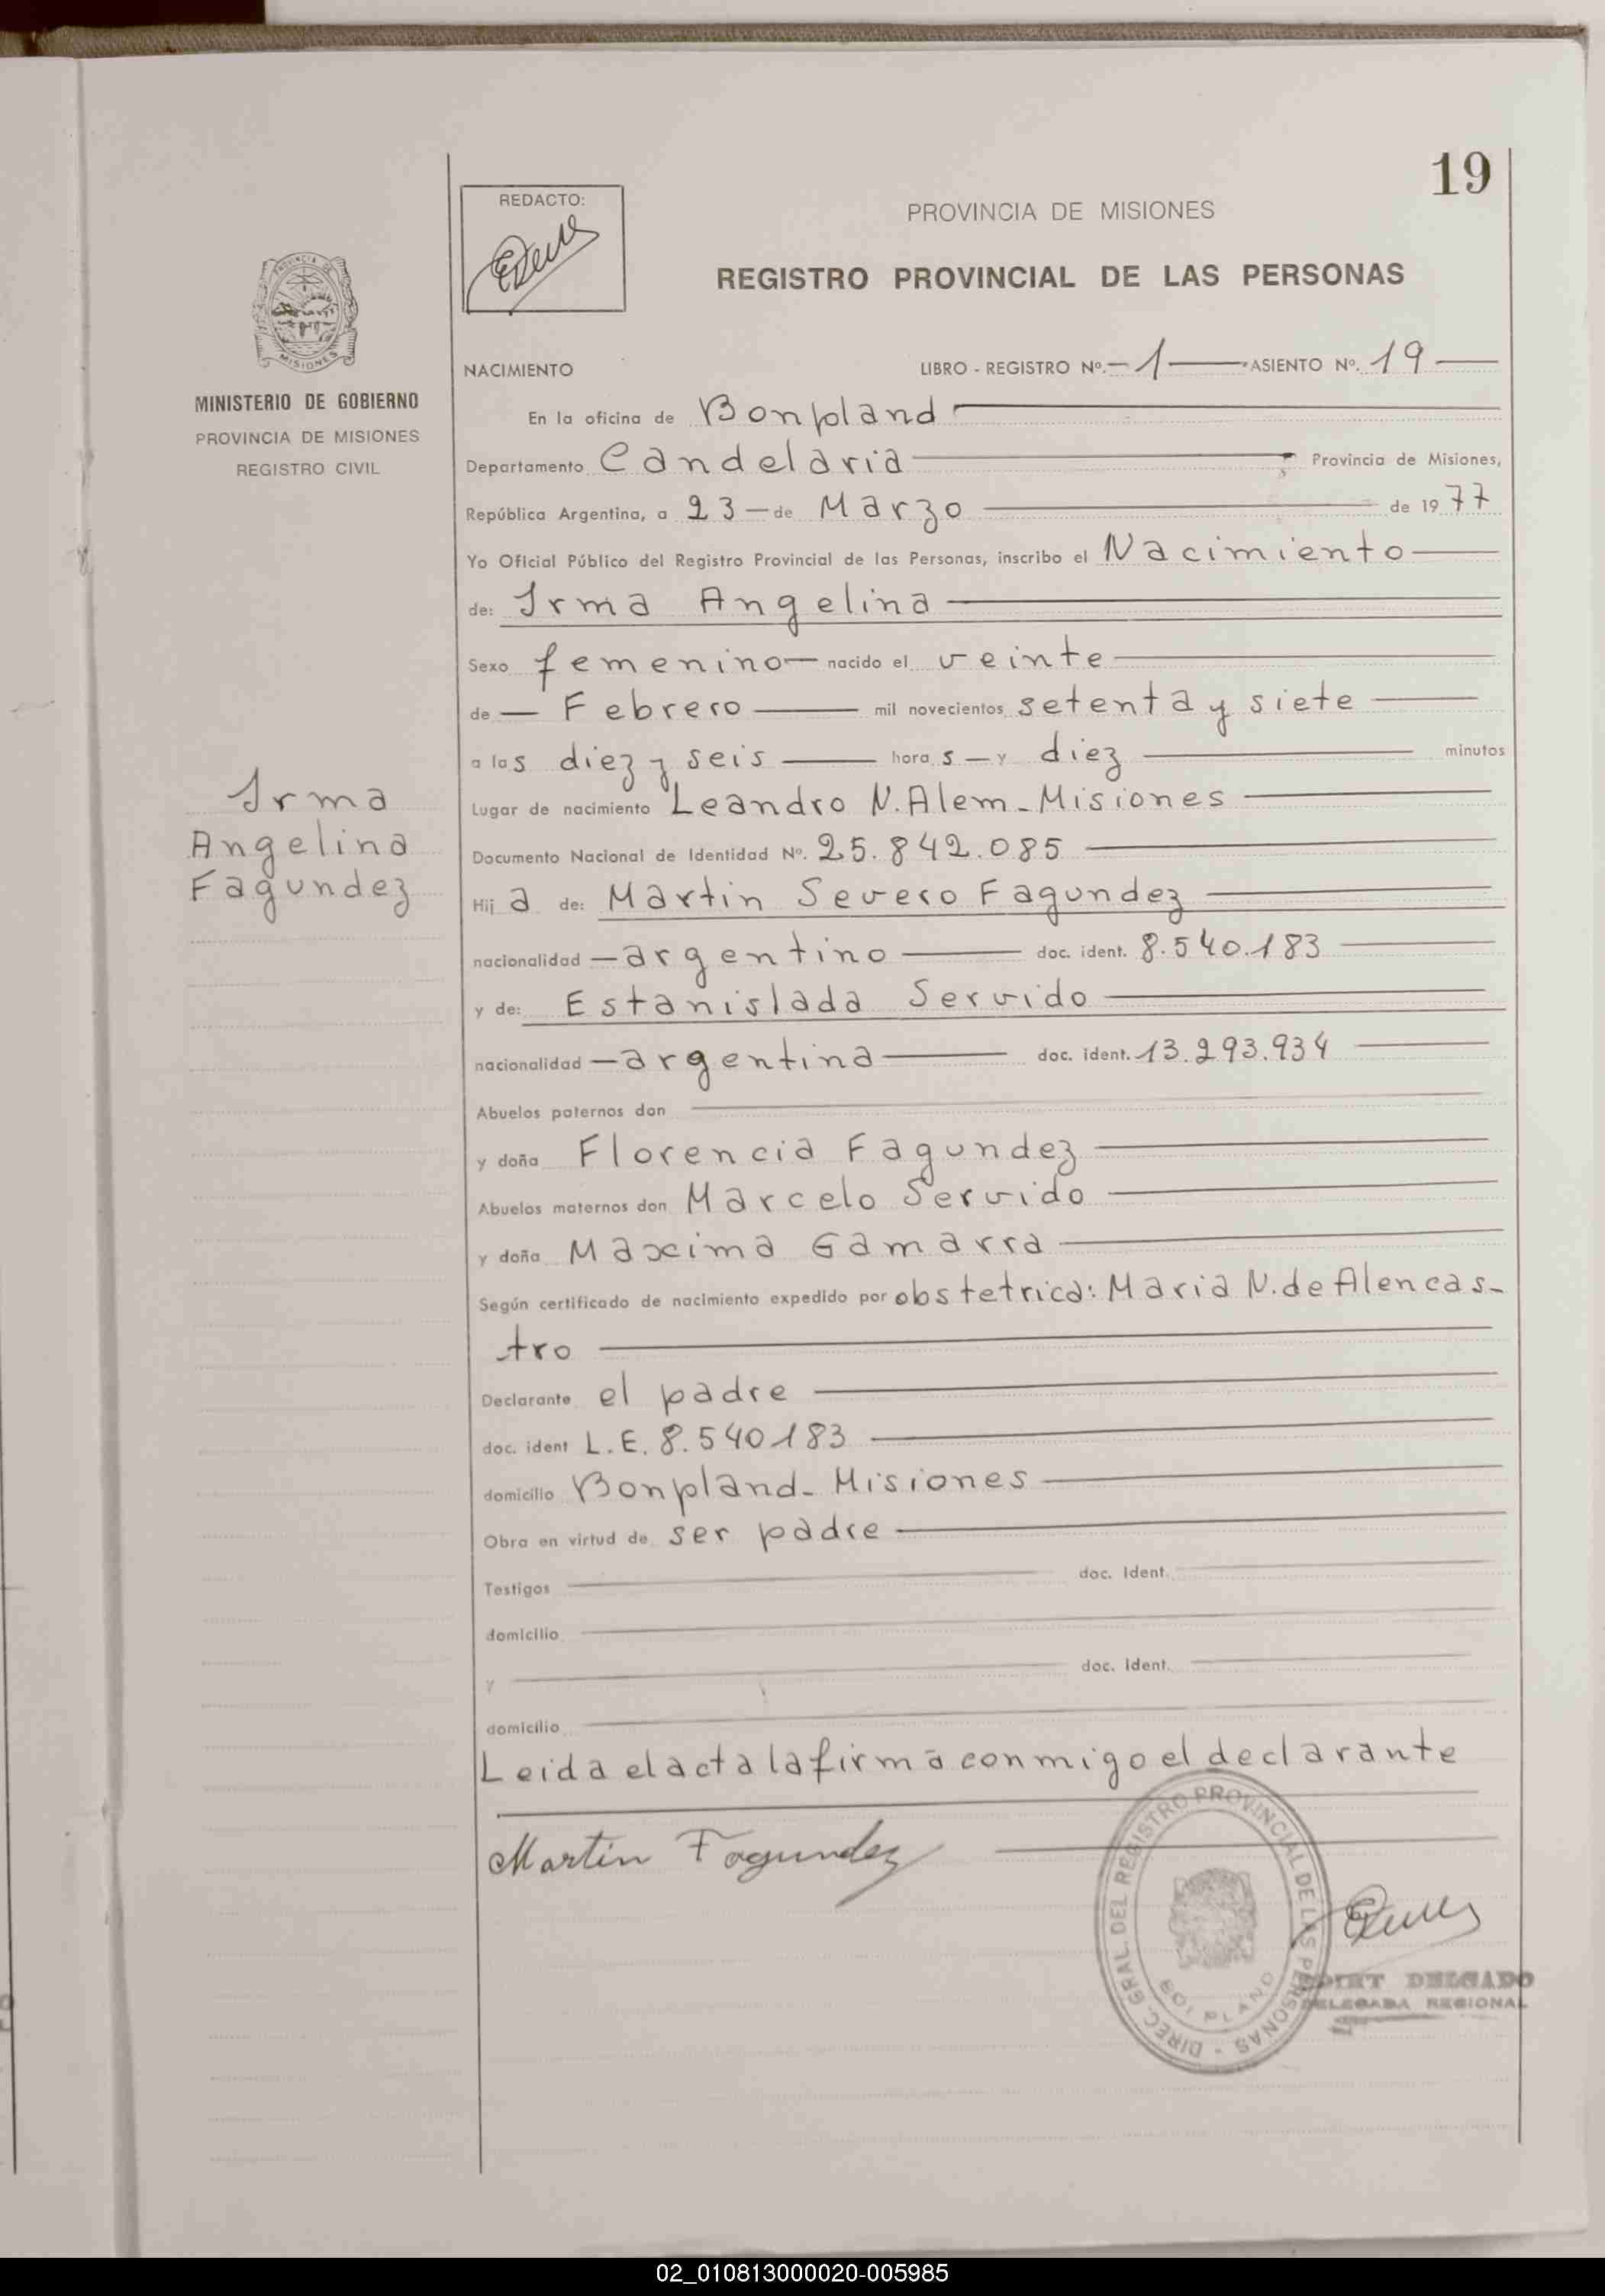 19
REDACTO:
PROVINCIA DE MISIONES
REGISTRO PROVINCIAL DE LAS PERSONAS
PROVINCIA DE
MISIONES
MINISTERIO DE GOBIERNO
PROVINCIA DE MISIONES
REGISTRO CIVIL
Irma
Angelina
Fagundez
NACIMIENTO LIBRO - REGISTRO Nº. 1 ASIENTO Nº. 19
En la oficina de Bonpland
Departamento Candelaria Provincia de Misiones,
República Argentina, a 23 de Marzo de 1977
Yo Oficial Público del Registro Provincial de las Personas, inscribo el Nacimiento
de: Irma Angelina
Sexo femenino nacido el veinte
de Febrero mil novecientos setenta y siete
a las diez y seis horas y diez minutos
Lugar de nacimiento Leandro N. Alem - Misiones
Documento Nacional de Identidad Nº. 25.842.085
Hija de: Martin Severo Fagundez
nacionalidad argentino doc. ident. 8.540.183
y de: Estanislada Servido
nacionalidad argentina doc. ident. 13.293.934
Abuelos paternos don
y doña Florencia Fagundez
Abuelos maternos don Marcelo Servido
y doña Maxima Gamarra
Según certificado de nacimiento expedido por obstetrica: Maria N. de Alencas-
tro
Declarante el padre
doc. ident L.E. 8.540.183
domicilio Bonpland - Misiones
Obra en virtud de ser padre
Testigos doc. Ident.
domicilio
y doc. Ident.
domicilio
Leida el acta la firma conmigo el declarante
Martin Fagundez
DIREC. GRAL. DEL REGISTRO PROVINCIAL DE LAS PERSONAS -
DELGADO
DELEGADA REGIONAL
02_010813000020-005985